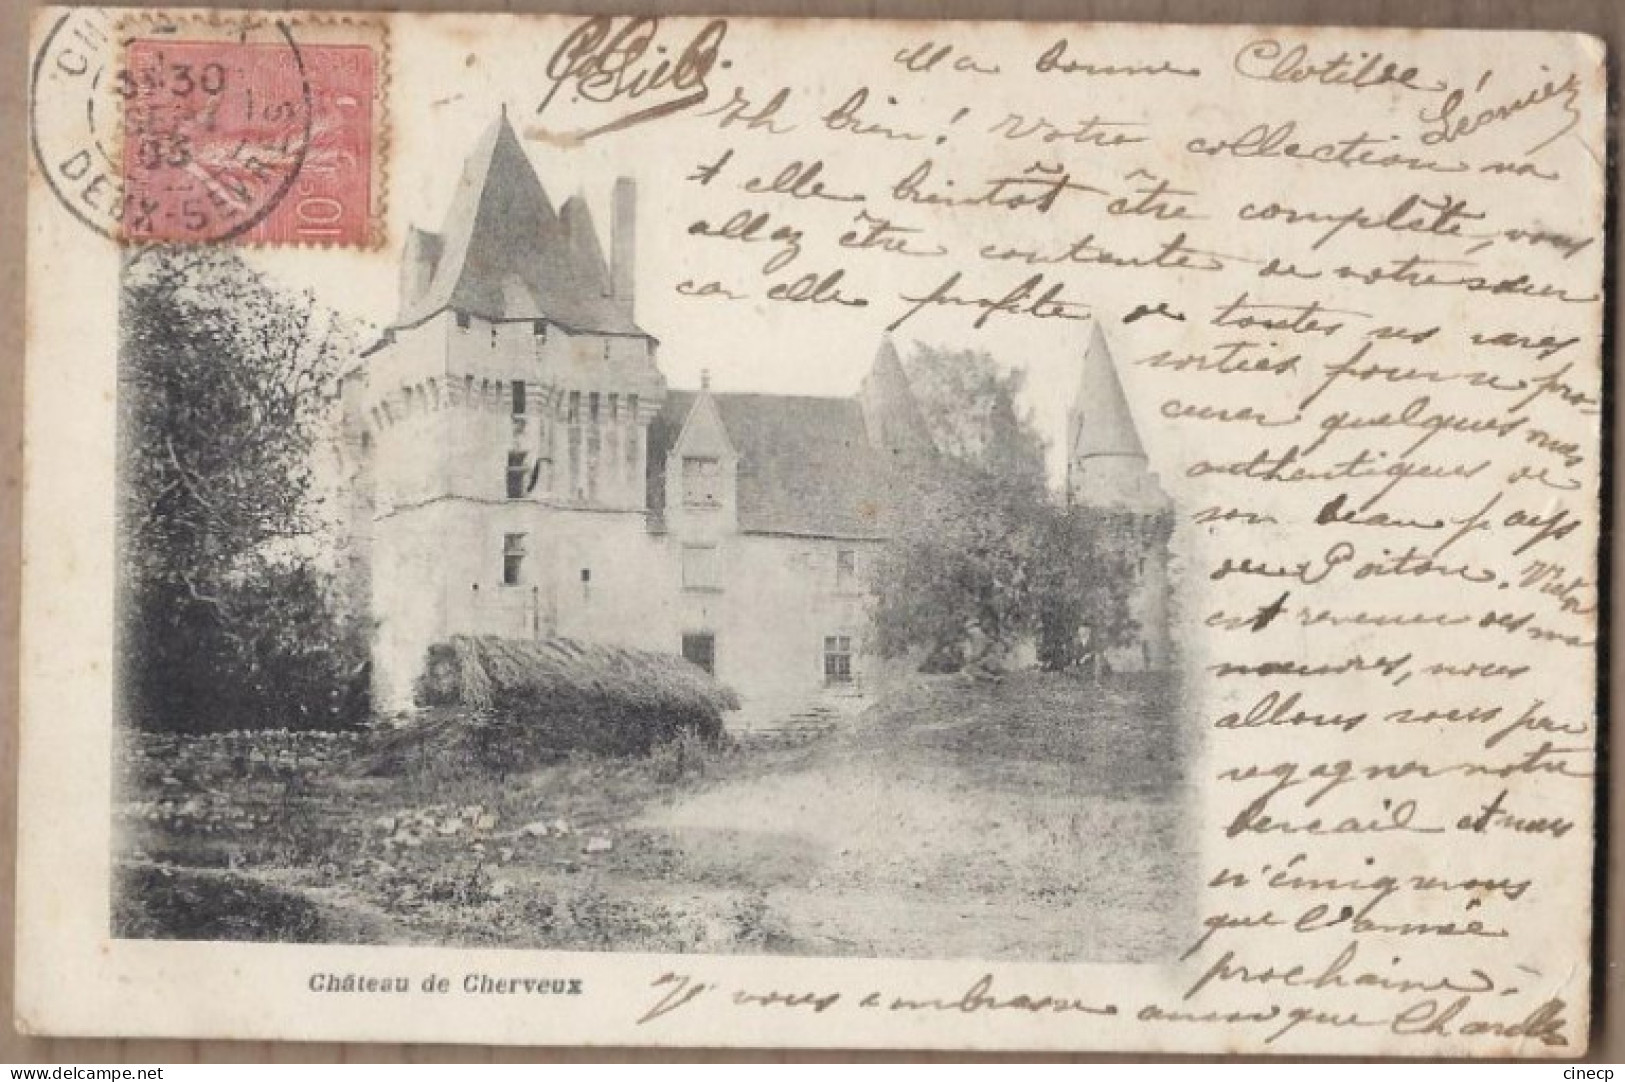 3 30
03
DEUX-SEVRES
10
Ma bonne Clotilde,
Eh bien! Votre collection va
t elle bientôt être complète, vous
allez être contente de votre sœur
car elle profite de toutes ses rares
sorties pour se pro-
curer quelques vues
authentiques de
son beau pays
du Poitou. Victor
est revenu des ma
nœuvres, nous
allons sous peu
regagner notre
bercail et nous
n'émigrerons
que l'année
prochaine.
Je vous embrasse ainsi que Charles
Château de Cherveux
cinecp